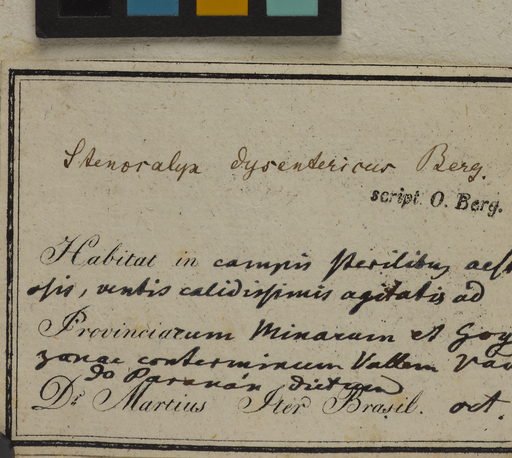 Stenocalyx dysentericus Berg.
script. O. Berg.
Habitat in campis sterilibus aest
osis, ventis calidissimis agitatis ad
Provinciarum Minarum et Goy
zanae conterminum Vallem Vao
do Paranán dictum
Dr. Martius Iter Brasil. oct.